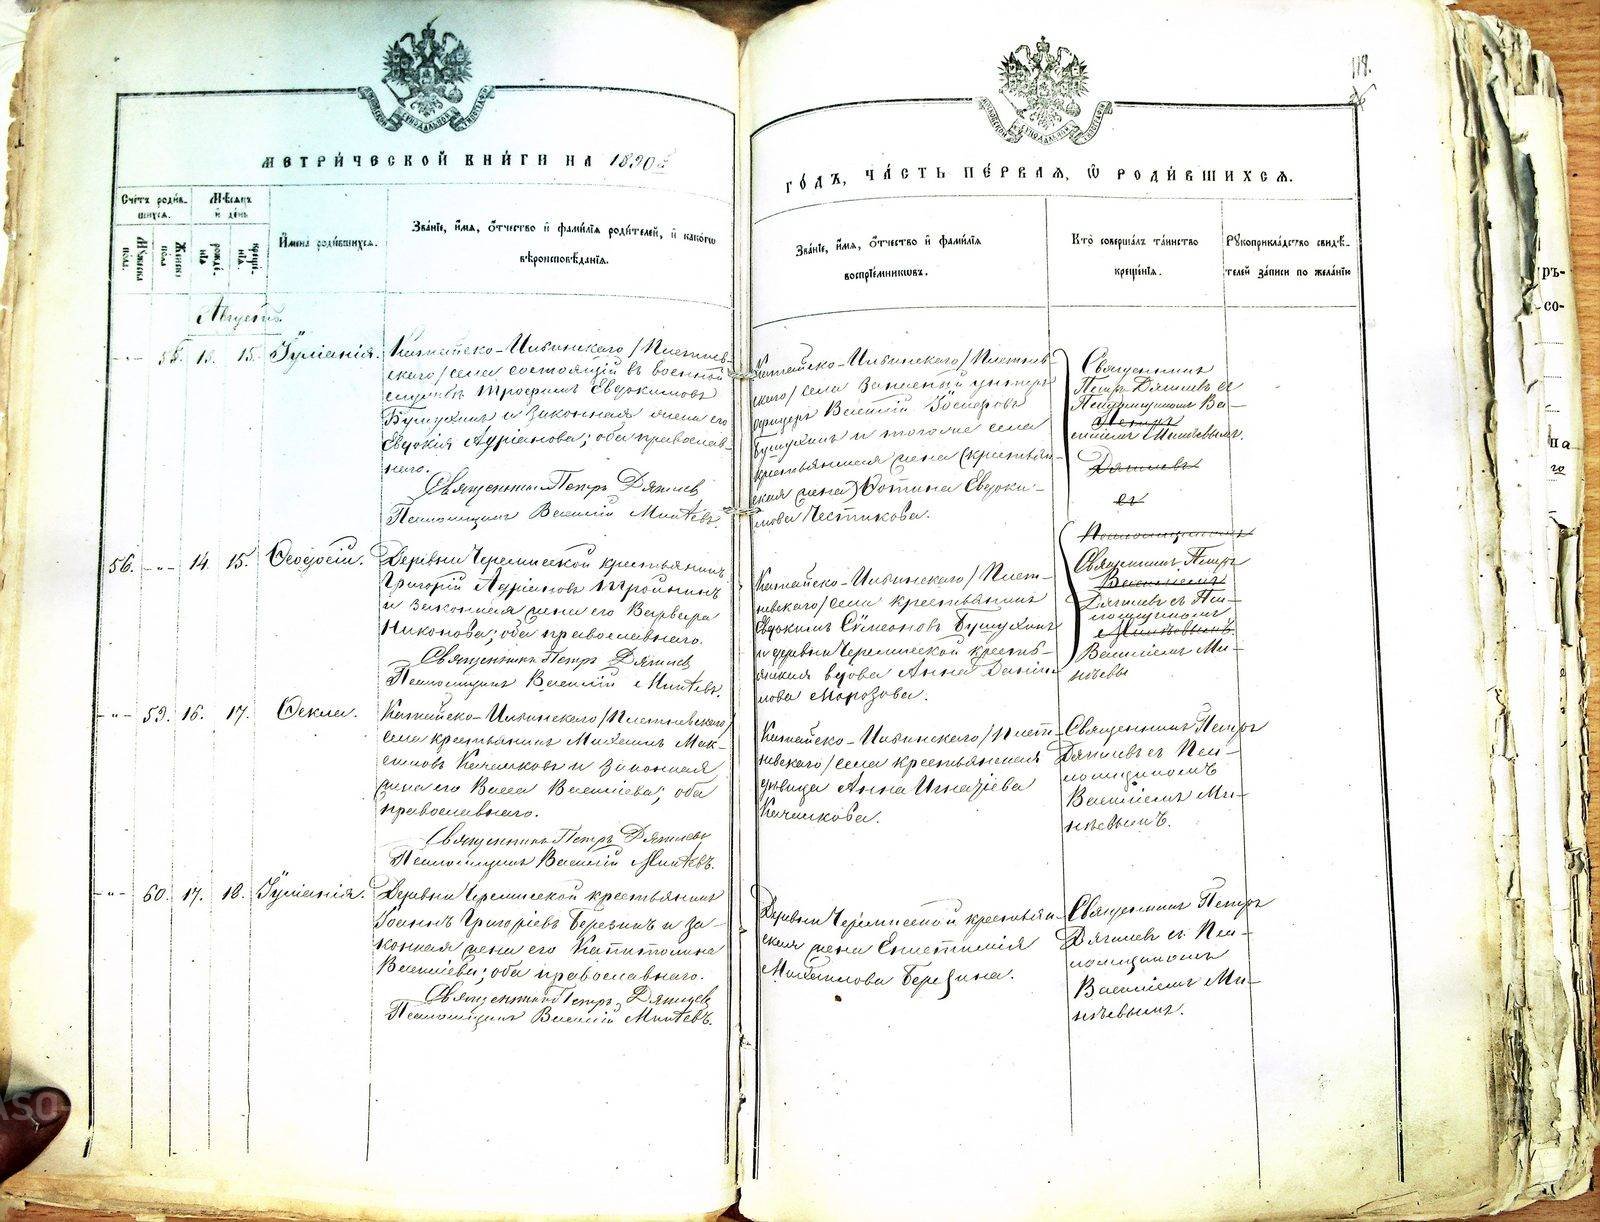 118.
МЕТРИ́ЧЕСКОЙ КНИ́ГИ НА 1890 й
ГО́ДЪ, ЧА́СТЬ ПЕ́РВАЯ, Ѡ РОДИ́ВШИХСЯ.
Сче́тъ роди́в-
шихся.
Му́жеска пола.
Же́нска пола
Мѣ́сяцъ
и де́нь
рожде́-
нїѧ
креще́-
нїѧ.
И҆мена роди́вшихсѧ.
Зва́нїе, и҆мѧ, о҆тчество и҆ фами́лїѧ роди́телей, и҆ како́гѡ
вѣроисповѣ́данїѧ.
Зва́нїе, и҆мѧ, о҆тчество и҆ фами́лїѧ
воспрїе́мниковъ.
Кто̀ соверша́лъ та́инство
креще́нїѧ.
Рꙋкоприкла́дство свидѣ́-
телей за́писи по жела́нїю
Августъ.
-"- 58. 13. 15. Іуліанія.
Катайско-Ильинскаго /Плетнев-
скаго/ села состоящій въ военной
службѣ Трофимъ Евдокимовъ
Бушухинъ и законная жена его
Евдокія Адріанова; оба православ-
наго.
Священникъ Петръ Дягилев
Псаломщикъ Василій Минѣевъ.
Катайско-Ильинскаго /Плетнев-
скаго/ села Запасный унтеръ
офицеръ Василій Іосифовъ
Бушухинъ и того же села
крестьянская жена (крестьян-
ская жена) Фотина Евдоки-
мова Чистикова.
Священникъ
Петръ Дягилевъ съ
Псаломщикомъ Ва-
Петръ
силіемъ Минѣевымъ.
Дягилевъ
съ
56. -"- 14. 15. Ѳеодосій.
Деревни Черемисской крестьянинъ
Григорій Адріановъ Тройнинъ
и законная жена его Варвара
Никонова; оба православнаго.
Священникъ Петръ Дягилев
Псаломщикъ Василій Минѣевъ.
Катайско-Ильинскаго /Плет-
невскаго/ села крестьянинъ
Евдокимъ Сѵмеоновъ Бушухинъ
и деревни Черемисской кресть-
янская вдова Анна Дании-
лова Морозова.
Псаломщикомъ
Священникъ Петръ
Василіемъ
Дягилевъ съ Пса-
ломщикомъ
Минѣевымъ
Василіемъ Ми-
нѣевы
-"- 59. 16. 17. Ѳекла.
Катайско-Ильинскаго /Плетневскаго/
села крестьянинъ Михаилъ Мак-
симовъ Качалковъ и законная
жена его Васса Василіева; оба
православнаго.
Священникъ Петръ Дягилевъ
Псаломщикъ Василій Минѣевъ.
Катайско-Ильинскаго /Плет-
невскаго/ села крестьянская
дѣвица Анна Игнатіева
Качалкова.
Священникъ Петръ
Дягилевъ съ Пса-
ломщикомъ
Василіемъ Ми-
нѣевымъ.
-"- 60. 17. 18. Іуліанія.
Деревни Черемисской крестьянинъ
Іоаннъ Григоріевъ Березинъ и за-
конная жена его Капитолина
Василіева; оба православнаго.
Священникъ Петръ Дягилев
Псаломщикъ Василій Минѣевъ.
Деревни Черемисской крестьян-
ская жена Епистимія
Михаилова Березина.
Священникъ Петръ
Дягилевъ съ Пса-
ломщикомъ
Василіемъ Ми-
нѣевымъ.
ръ-
со-
на
го